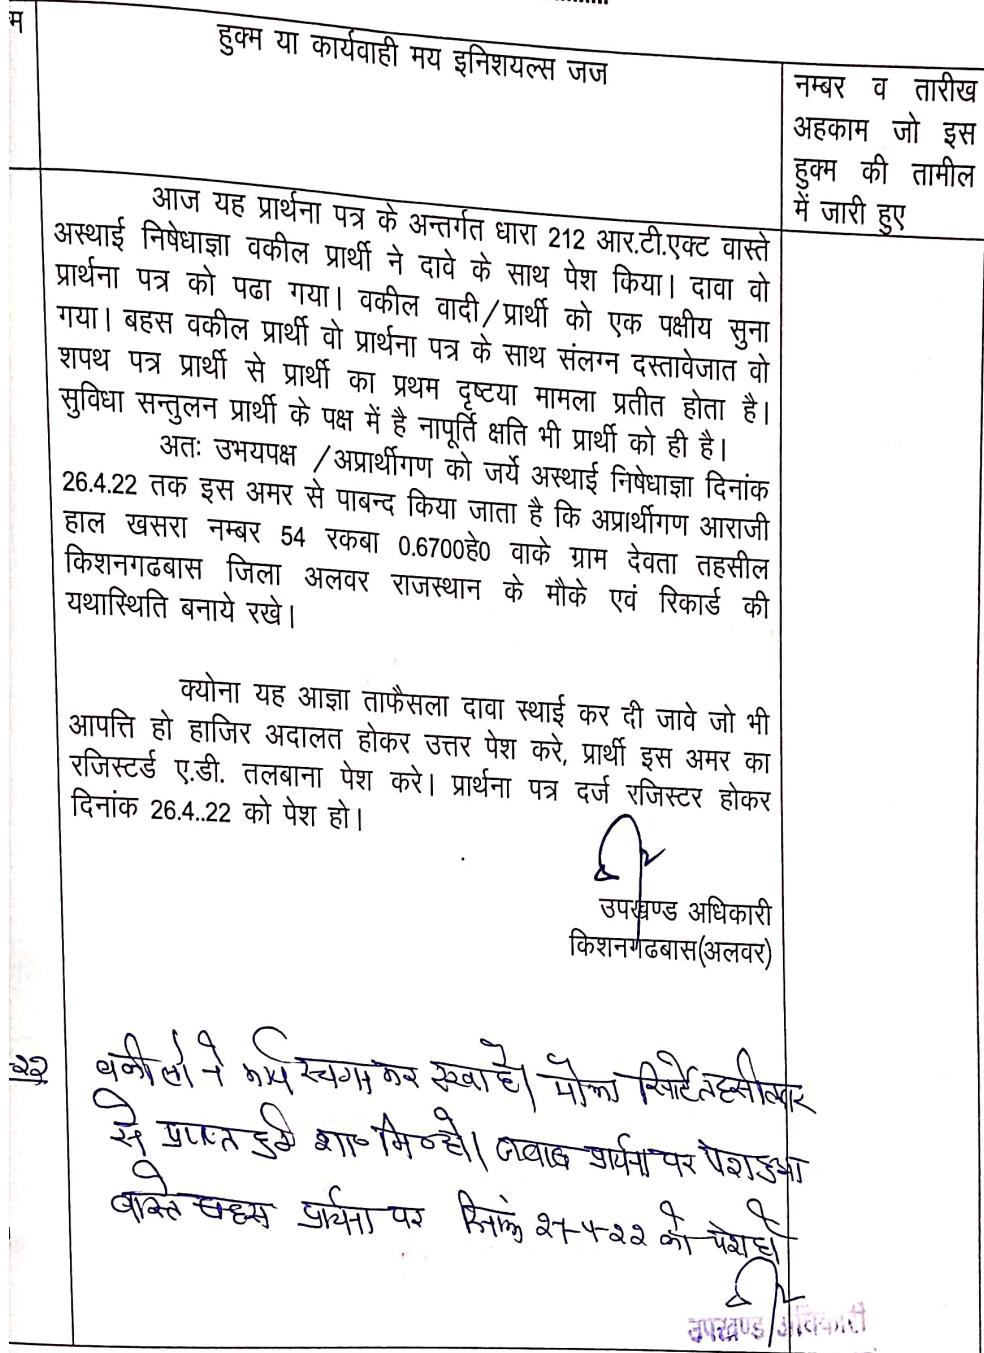 म
हुक्म या कार्यवाही मय इनिशयल्स जज
नम्बर व तारीख
अहकाम जो इस
हुक्म की तामील
में जारी हुए
आज यह प्रार्थना पत्र के अन्तर्गत धारा 212 आर.टी.एक्ट वास्ते
अस्थाई निषेधाज्ञा वकील प्रार्थी ने दावे के साथ पेश किया। दावा वो
प्रार्थना पत्र को पढा गया। वकील वादी/प्रार्थी को एक पक्षीय सुना
गया। बहस वकील प्रार्थी वो प्रार्थना पत्र के साथ संलग्न दस्तावेजात वो
शपथ पत्र प्रार्थी से प्रार्थी का प्रथम दृष्टया मामला प्रतीत होता है।
सुविधा सन्तुलन प्रार्थी के पक्ष में है नापूर्ति क्षति भी प्रार्थी को ही है।
अतः उभयपक्ष /अप्रार्थीगण को जर्ये अस्थाई निषेधाज्ञा दिनांक
26.4.22 तक इस अमर से पाबन्द किया जाता है कि अप्रार्थीगण आराजी
हाल खसरा नम्बर 54 रकबा 0.6700हे0 वाके ग्राम देवता तहसील
किशनगढबास जिला अलवर राजस्थान के मौके एवं रिकार्ड की
यथास्थिति बनाये रखे।
क्योना यह आज्ञा ताफैसला दावा स्थाई कर दी जावे जो भी
आपत्ति हो हाजिर अदालत होकर उत्तर पेश करे, प्रार्थी इस अमर का
रजिस्टर्ड ए.डी. तलबाना पेश करे। प्रार्थना पत्र दर्ज रजिस्टर होकर
दिनांक 26.4..22 को पेश हो।
उपखण्ड अधिकारी
किशनगढबास(अलवर)
२२ वकीलो ने कार्य स्थगन कर रखा है। मौका रिपोर्ट तहसीलदार
से प्राप्त हुई शा॰ मि॰ हो। जवाब प्रार्थना पत्र पेश हुआ
वास्ते बहस प्रार्थना पत्र दिनांक को पेश हो
उपखण्ड अधिकारी